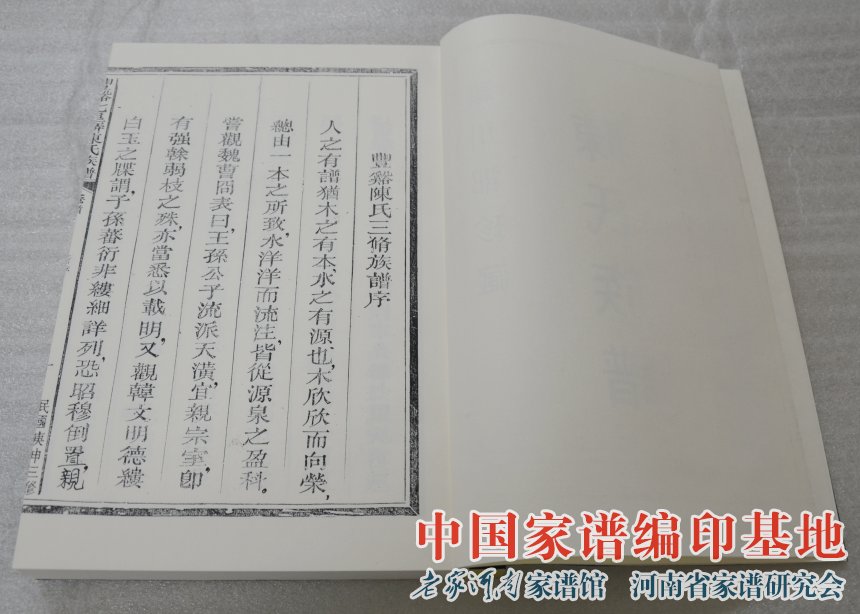 豐谿陳氏三脩族譜序
人之有譜猶木之有本,水之有源也,木欣欣而向榮,
總由一本之所致,水洋洋而流注,皆從源泉之盈科。
嘗觀魏曹冏表曰,王孫公子流派天潢,宜親宗室,卽
有强榦弱枝之殊,亦當悉以載明,又觀韓文明德縷
白玉之牒,謂子孫蕃衍非縷細詳列,恐昭穆倒置,親
陳氏族譜
卷首
民國庚申三修
中国家谱编印基地
老家河南家谱馆 河南省家谱研究会